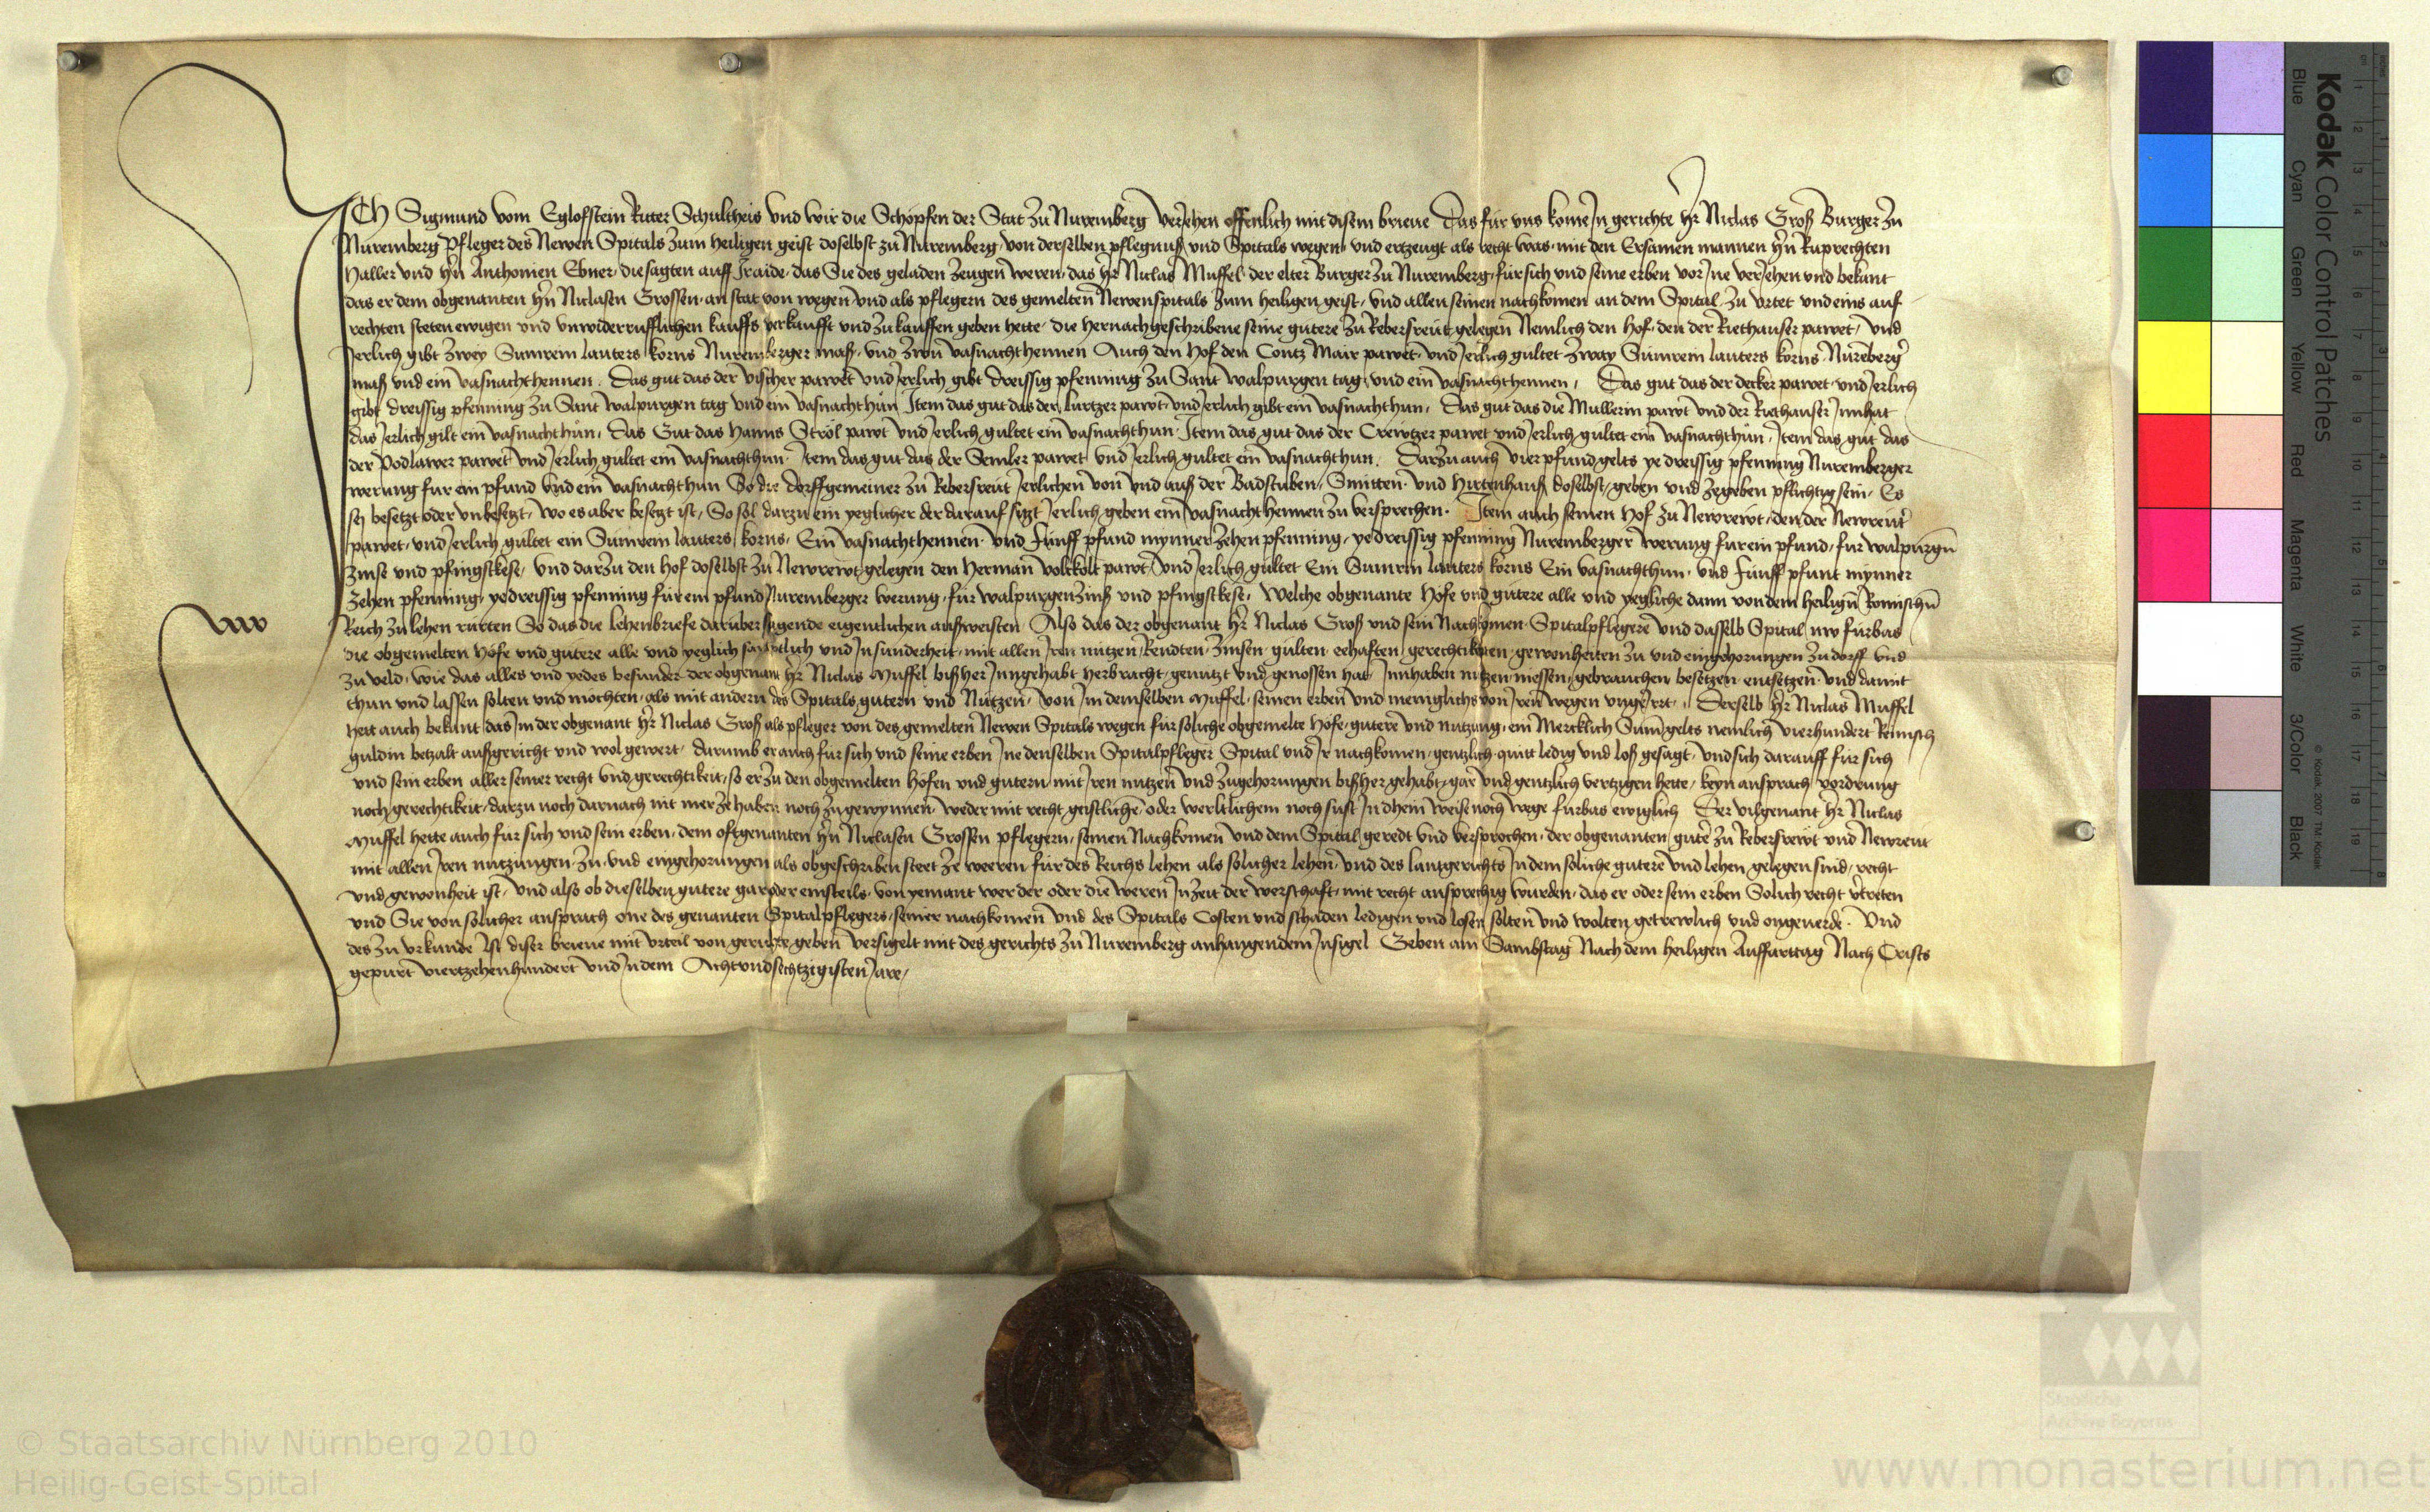 ICh Sigmund vom Eglofstein Ritter Schultheis vnd wir die Schopfen der Stat zu Nuremberg veriehen offenlich mit disem brieue Das fur vns kome Jn gerichte hr Niclas Groß Burger zu
Nuremberg Pfleger des Newen Spitals zum heiligen geist doselbst zu Nuremberg von derselben pflegnuß vnd Spitals wegen vnd ertzeugt als recht was mit den Ersamen mannen hn Ruprechten
Haller vnd hn Anthonien Ebner die sagten auff Jr aide das Sie des geladen zeugen weren das hr Niclas Muffel der elter Burger zu Nuremberg fur sich vnd seine erben vor Jne veriehen vnd bekant
das er dem obgenanten hn Niclasen Grossen an stat von wegen vnd als pflegern des gemelten Newenspitals zum heiligen geist vnd allen seinen nachkomen an dem Spital zu vrtet vnd eins auf
rechten steten ewigen vnd vnwiderrufflichen kauffs verkaufft vnd zukauffen geben hette die hernachgeschribene seine gutere zu Rebersreut gelegen Nemlich den hof den der Riethauser pawet vnd
Jerlich gibt zwey Sumrein lauters korns Nuremberger maß vnd zwu vasnachthennen Auch den hof den Contz Mair pawet vnd Jerlich gultet zway Sumrein lauters korns Nurēberg
maß vnd ein vasnachthennen Das gut das der vischer pawet vnd Jerlich gibt dreissig pfenning zu Sant walpurgen tag vnd ein vasnachthennen Das gut das der decker pawet vnd Jerlich
gibt dreissig pfenning zu Sant walpurgen tag vnd ein vasnachthun Item das gut das der lurtzer pawt vnd Jerlich gibt ein vasnachthun Das gut das die Mullerin pawt vnd der Riethauser Jnnhat
das Jerlich gilt ein vasnachthun Das Gut das Hanns Strol pawt vnd Jerlich gultet ein vasnachthun Item das gut das der Crewtzer pawet vnd Jerlich gultet ein vasnachthun Jtem das gut das
der Podlawer pawet vnd Jerlich gultet ein vasnachthun Jtem das gut das der Semler pawet vnd Jerlich gultet ein vasnachthun Darzu auch vier pfund gelts ye dreissig pfenning Nuremberger
werung fur ein pfund vnd ein vasnachthun So die dorffgemeiner zu Rebersreut Jerlichen von vnd auß der Badstuben Smitten vnd hirtenhauß doselbst geben vnd zegeben pflichtig sein Es
sej besetzt oder vnbesetzt wo es aber besetzt ist So sol darzu ein yeglicher der darauf sitzt Jerlich geben ein vasnachthennen zu versprechen Item auch seinen hof zu Newrewt den der Newreut
pawet vnd Jerlich gultet ein Sumrein lauters korns Ein vasnachthennen vnd funff pfund mynner zehen pfenning ye dreissig pfenning Nuremberger werung fur ein pfund fur walpurgn
zinse vnd pfingstkese vnd darzu den hof doselbst zu Newrewt gelegen den Herman volckolt pawt vnd Jerlich gultet Ein Sumrin lauters korns Ein vasnachthun vnd funff pfunt mynner
zehen pfenning ye dreissig pfenning fur ein pfund Nuremberger werung fur walpurgenzinß vnd pfingstkese Welche obgenante hofe vnd gutere alle vnd yegliche dann von dem heilign Romischn
Reich zu lehen rurten So das die lehenbriefe daruber sagende eigentlichen außweisten Also das der obgenant hr Niclas Groß vnd sein Nachkomen Spitalpflegere vnd dasselb Spital nw furbas
die obgemelten hofe vnd gutere alle vnd yeglich samptlich vnd Jnsunderheit mit allen Jren nutzen Rendten zinsen gulten eehaften gerechtikeiten gewonheiten zu vnd eingehorungen zu dorff vnd
zu veld wie das alles vnd yedes besunder der obgenant hr Niclas Muffel bißher Jnngehabt herbracht genutzt vnd genossen hat Jnnhaben nutzen niessen gebrauchen besetzen entsetzen vnd damit
thun vnd lassen solten vnd mochten als mit andern des Spitals gutern vnd Nutzen von Jm demselben Muffel seinen erben vnd meniglichs von Jren wegen vngeirrt Derselb hr Niclas Muffel
hett auch bekant das Jm der obgenant hr Niclas Groß als pfleger von des gemelten Newen Spitals wegen fur soliche obgemelte hofe gutere vnd nutzung ein Mercklich Sum gelts nemlich vierhundert Reinisch
guldin betzalt außgericht vnd wol gewert darumb er auch fur sich vnd seine erben Jne denselben Spitalpfleger Spital vnd Jr nachkomen gentzlich quitt ledig vnd loß gesagt vnd sich darauff fur sich
vnd sein erben aller seiner recht vnd gerechtikeit so er zu den obgemelten hofen vnd gutern mit Jren nutzen vnd zugehorungen bißher gehabt gar vnd gentzlich vertzigen hette keyn ansprach vordrung
noch gerechtikeit darzu noch darnach nit mer ze haben noch zugewynnen weder mit recht geistliche oder werltlichem noch sust Jn dhein weise noch wege furbas ewiglich Der vilgenant hr Niclas
Muffel hette auch fur sich vnd sein erben dem oftgenanten hn Niclasen Grossen pflegern seinen Nachkomen vnd dem Spital geredt vnd versprochen der obgenanten gute zu Rebersrewt vnd Newreut
mit allen Jren nutzungen zu vnd eingehorungen als obgeschriben steet ze weeren fur des Reichs lehen als solicher lehen vnd des lantgerichts Jn dem soliche gutere vnd lehen gelegen sind recht
vnd gewonheit ist vnd also ob dieselben gutere gar oder einsteils von yemant wer der oder die weren Jn zeit der werschaft mit recht ansprechig wurden das er oder sein erben Solich recht vtreten
vnd Sie von solicher ansprach one des genanten Spitalpflegers seiner nachkomen vnd des Spitals Costen vnd schaden ledigen vnd losen solten vnd wolten getrewlich vnd ongeuerde Vnd
des zu vrkunde Ist diser brieue mit vrteil von gerichte geben versigelt mit des gerichts zu Nuremberg anhangendem Jnsigel Geben am Sambstag Nach dem heiligen Auffarttag Nach Crists
gepurt viertzehenhundert vnd Jn dem Achtvndsechtzigisten Jare
Kodak Color Control Patches
Blue Cyan Green Yellow Red Magenta White 3/Color Black
© Kodak, 2007 TM: Kodak
© Staatsarchiv Nürnberg 2010
Heilig-Geist-Spital
Staatliche
Archive Bayerns
www.monasterium.net